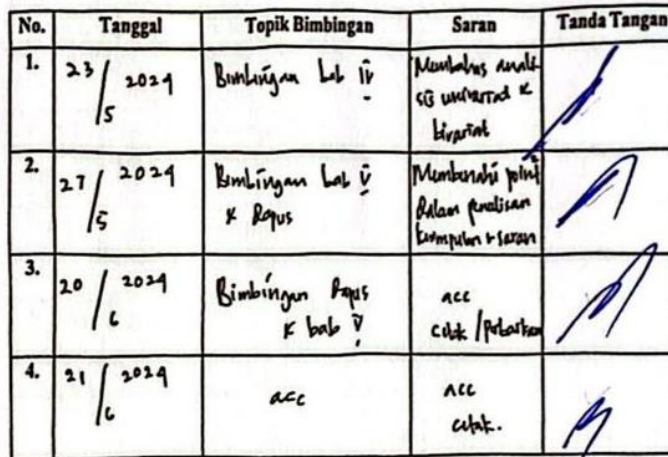 No. Tanggal Topik Bimbingan Saran Tanda Tangan
1. 23/5 2024 Bimbingan bab IV Membahas anali
sis univariat &
bivariat
2. 27/5 2024 Bimbingan bab V Membenahi point
& Dapus dalam penulisan
kesimpulan & saran
3. 20/6 2024 Bimbingan Dapus acc
& bab V cetak /
4. 21/6 2024 acc acc
cetak.